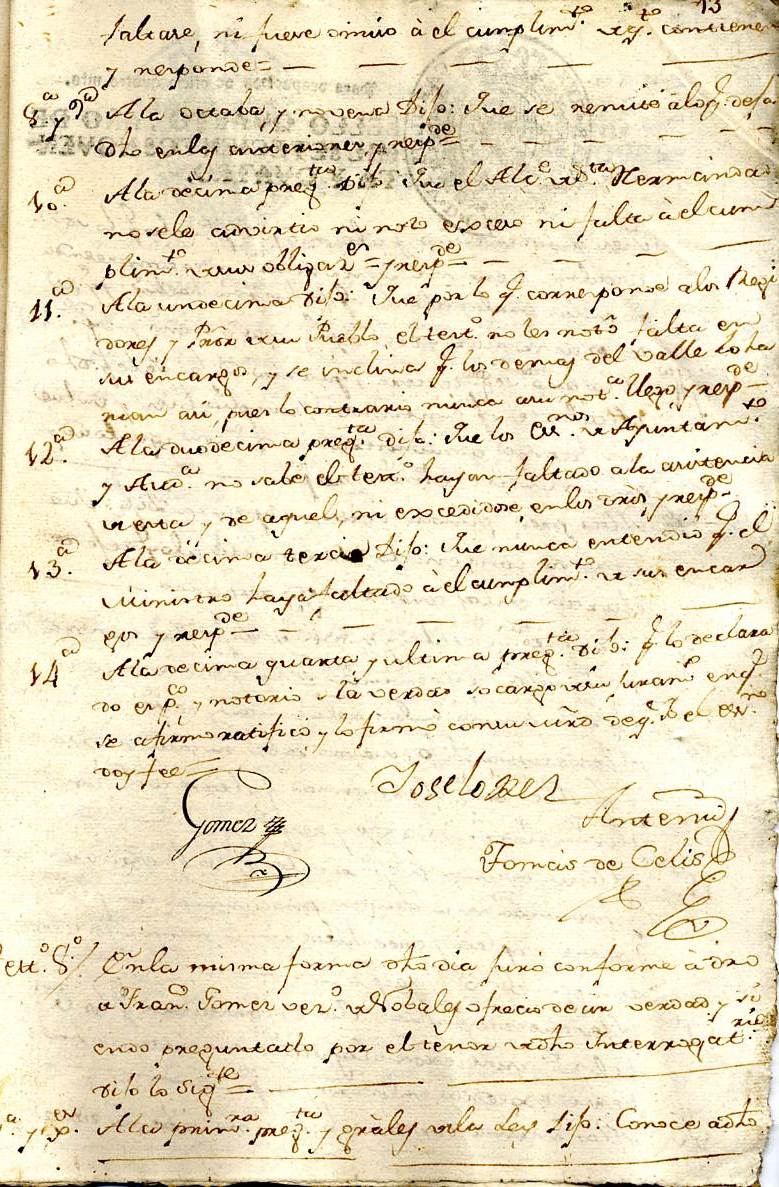 13
faltare, ni fuese omiso à el cumplim.to contiene
y responde=
8.a y 9.a A la octaba, y novena Dijo: Que se remite à lo q.e deja
dho en las anteriores, y resp.de
10.a A la decima preg.ta Dijo: Que el Alc.e Hermandad
no se le advirtio ni noto exceso ni falta à el cum
plim.to obligaz.on y resp.de
11.a A la undecima Dijo: Que por lo q.e corresponde a los Regi
dores, y Pueblo, el test.o no les notò falta en
sus encargos, y se inclina q.e los demas del Valle lo ha
rian asi, pues lo contrario nunca a su not.a llego y resp.de
12.a A la duodecima preg.ta dijo: Que los Ayuntam.to
y Aud.a no sabe el test.o hayan faltado a la asistencia
de esta, y de aquel, ni excedidose en los y resp.de
13.a A la decima tercia Dijo: Que nunca entendio q.e el
Ministro haya faltado à el cumplim.to de sus encar
gos y resp.de
14.a A la decima quarta y ultima preg.ta Dijo: q.e lo declara
do es p.co y notorio la verdad so cargo de su juram.to en q.e
se afirmo ratificò y lo firmò con su mrd de q.e Yo el es.no
doy fee=
Gomez
Jose Lopez
Antemi
Tomas de Celis
test.o 8.o En la misma forma dho dia juró conforme à dro
Fran.co Gomez vez.o de Obales ofrecio decir verdad y si
endo preguntado por el tenor de dho Interrogat.rio
Dijo lo sig.te
A la prim.ra preg.ta y grãles de la Ley Dijo: Conoce a dho